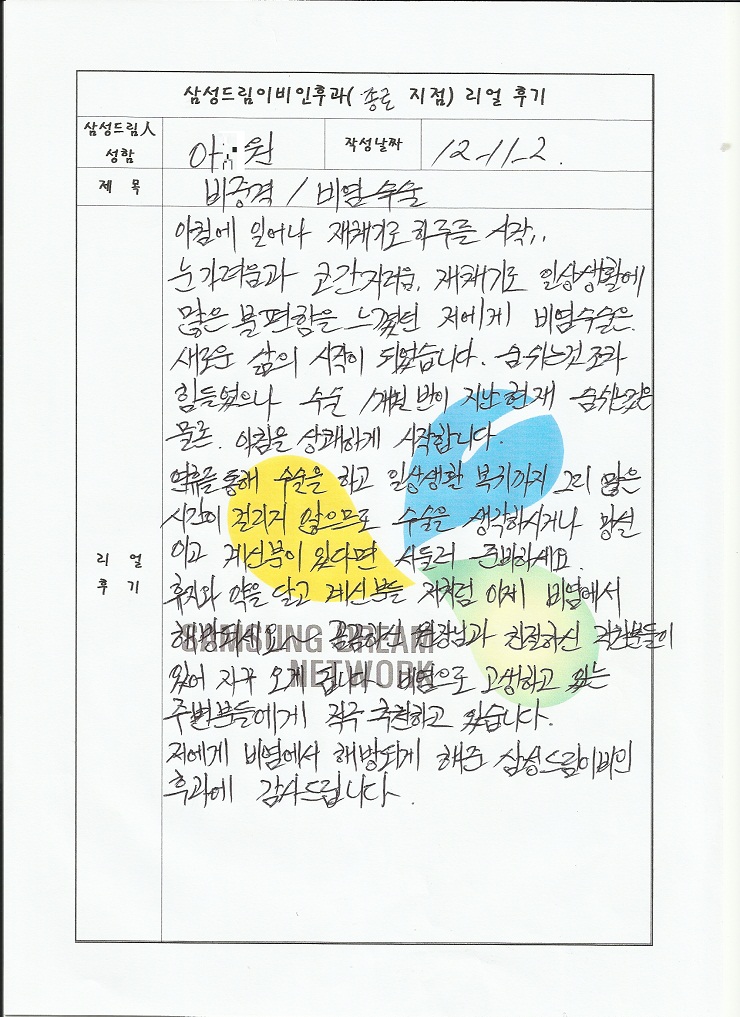 삼성드림이비인후과( 종로 지점) 리얼 후기
삼성드림人
성함
아 원
작성날짜
12_11_2.
제 목
비중격 / 비염수술
아침에 일어나 재채기로 하루를 시작..
눈가려움과 코간지러움, 재채기로 일상생활에
많은 불편함을 느꼈던 저에게 비염수술은
새로운 삶의 시작이 되었습니다. 숨쉬는것 조차
힘들었으나 수술 1개월 반이 지난 현재 숨쉬는것은
물론. 아침을 상쾌하게 시작합니다.
통해 수술을 하고 일상생활 복귀까지 그리 많은
시간이 걸리지 않으므로 수술을 생각하시거나 망설
이고 계신분이 있다면 서둘러 준비하세요.
휴지와 약을 달고 계신분들 저처럼 이제 비염에서
해방되세요~ 꼼꼼하신 원장님과 친절하신 직원분들이
있어 자꾸 오게 됩니다 비염으로 고생하고 있는
주변분들에게 적극 추천하고 있습니다.
저에게 비염에서 해방되게 해준 삼성드림이비인
후과에 감사드립니다.
리 얼
후 기
SAMSUNG DREAM
NETWORK